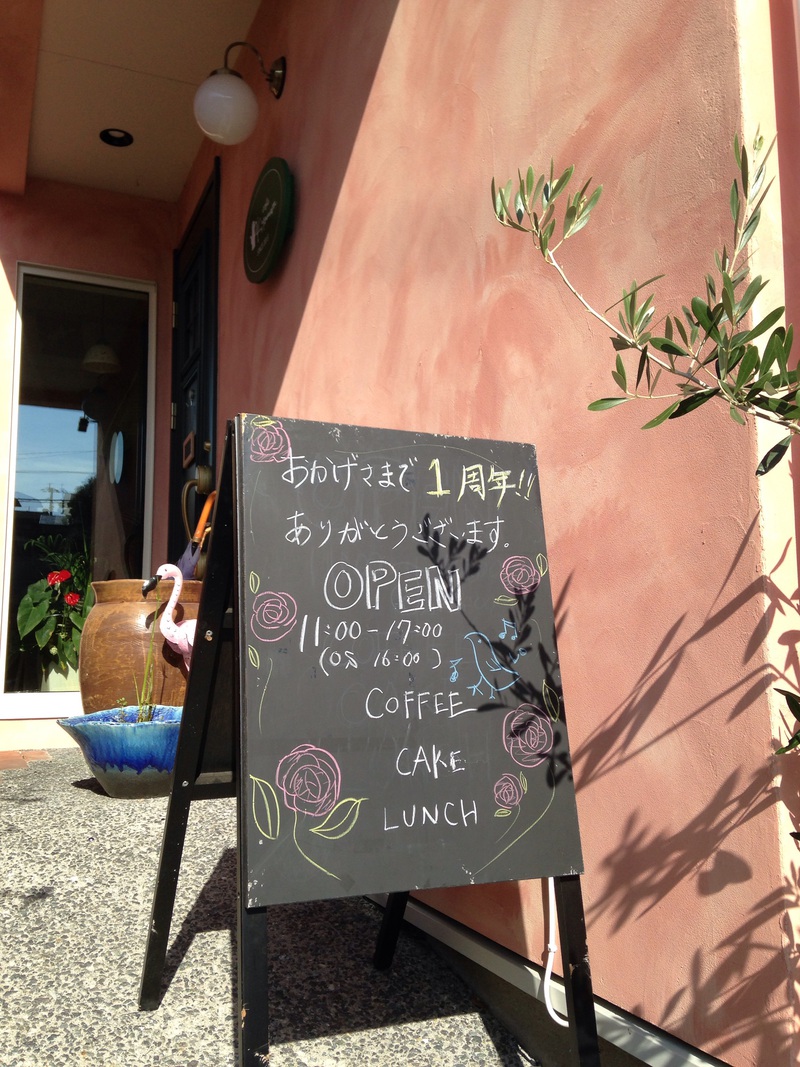 おかげさまで 1周年!!
ありがとうございます。
OPEN
11:00-17:00
(OS 16:00)
COFFEE
CAKE
LUNCH